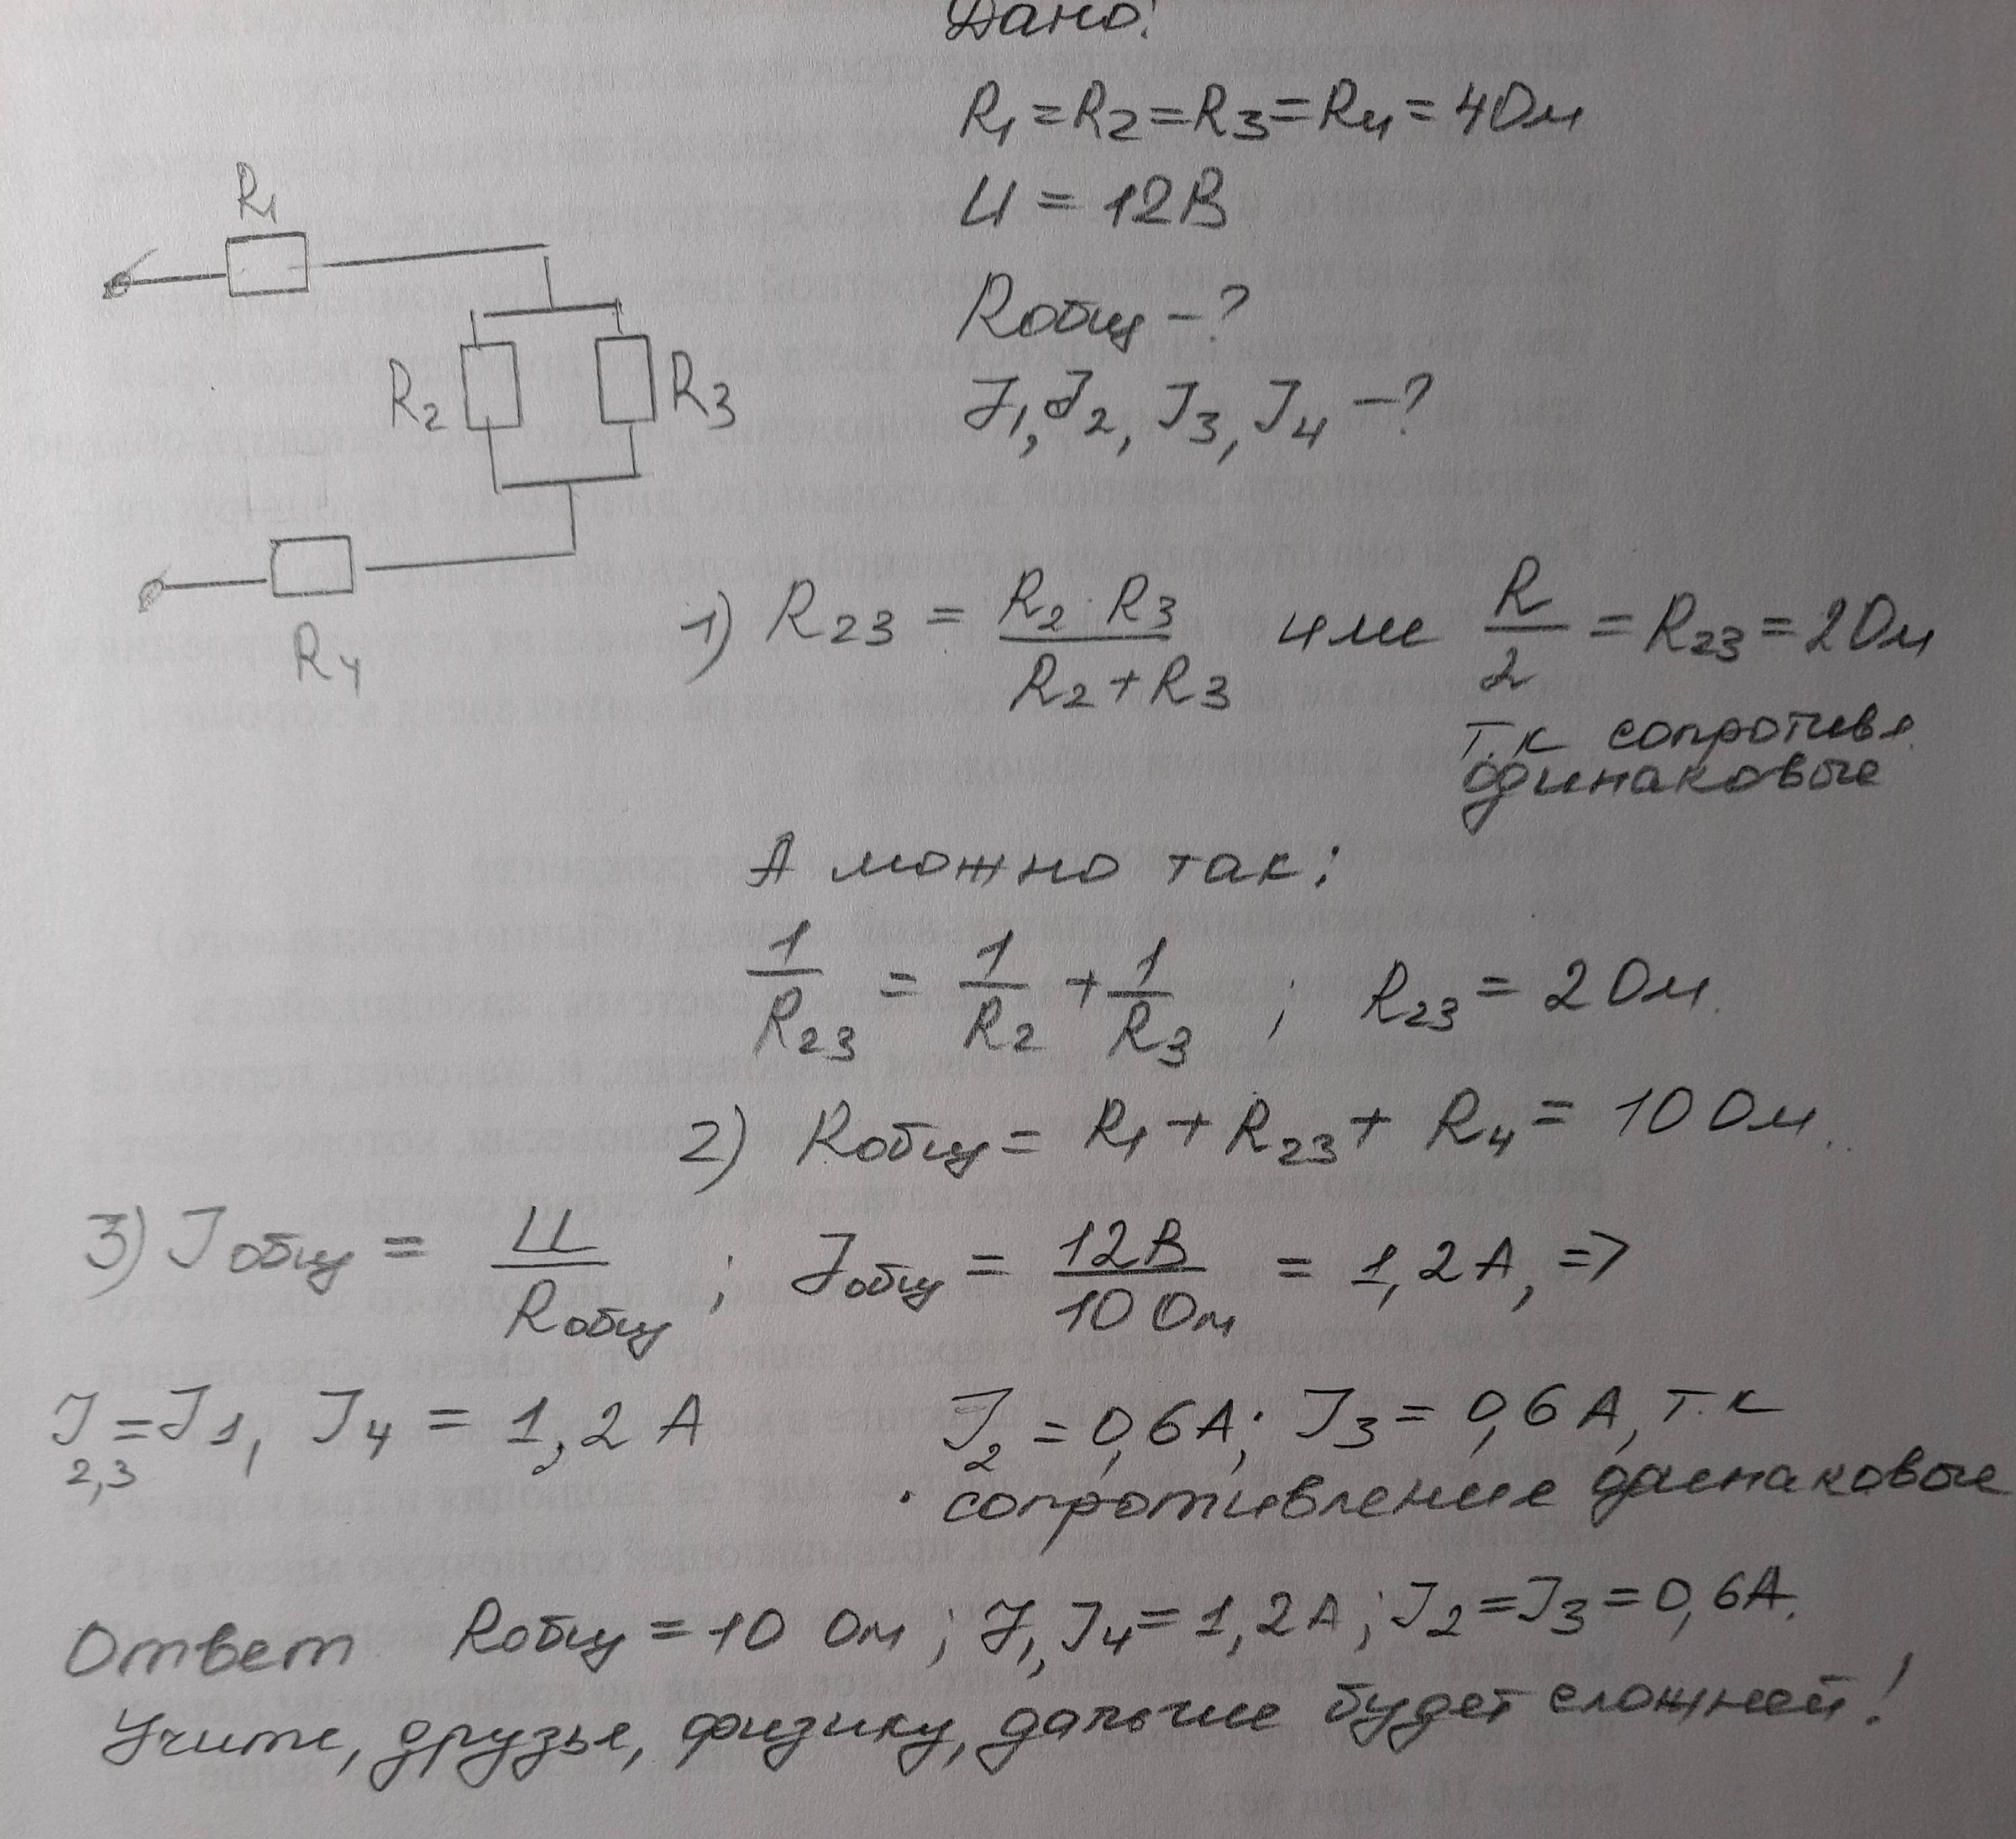 Дано:
R1 = R2 = R3 = R4 = 4Ом
U = 12В
Rобщ - ?
J1, J2, J3, J4 - ?
R1
R2
R3
R4
1) R23 = R2 · R3 / R2 + R3 или R/2 = R23 = 2Ом
т.к сопротивл.
одинаковые
А можно так:
1/R23 = 1/R2 + 1/R3 ; R23 = 2Ом.
2) Rобщ = R1 + R23 + R4 = 10 Ом.
3) Jобщ = U/Rобщ ; Jобщ = 12В/10Ом = 1,2А, =>
J2,3 = J1, J4 = 1,2 А
J2 = 0,6А; J3 = 0,6А, т.к
сопротивление одинаковые
Ответ Rобщ = 10 Ом; J1, J4 = 1,2А; J2 = J3 = 0,6А.
Учите, друзья, физику, дальше будет сложней!